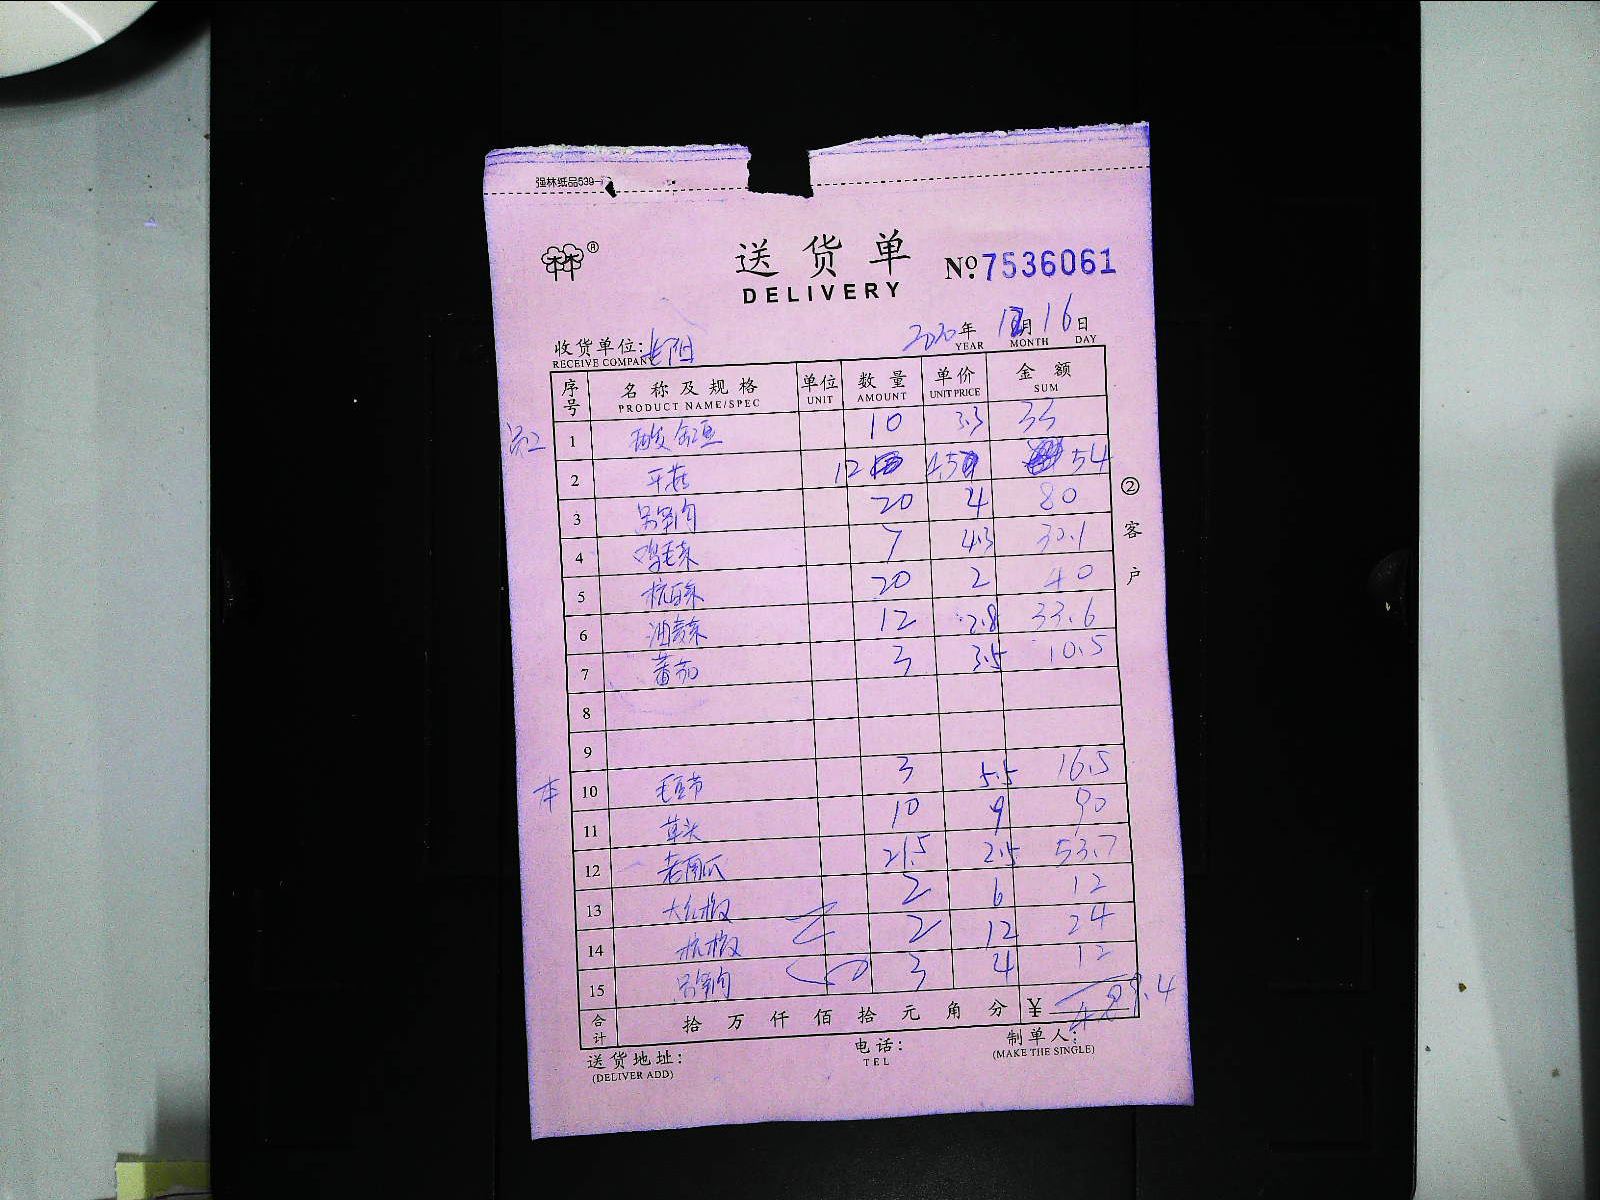 强林纸品539-
送货单
DELIVERY
№7536061
收货单位:
RECEIVE COMPANY
2020年 月16日
YEAR MONTH DAY
序号 名称及规格 单位 数量 单价 金额
PRODUCT NAME/SPEC UNIT AMOUNT UNIT PRICE SUM
1 10 3.3 33
2 平菇 12 4.5 54
3 20 4 80
4 鸡毛菜 7 4.3 30.1
5 杭白菜 20 2 40
6 油麦菜 12 2.8 33.6
7 蕃茄 3 3.5 10.5
8
9
本 10 毛豆节 3 5.5 16.5
11 草头 10 9 90
12 老南瓜 21.5 2.5 53.7
13 大红椒 2 6 12
14 杭椒 2 12 24
15 3 4 12
合计 拾万仟佰拾元角分 ¥ 489.4
②客户
送货地址: 电话: 制单人:
(DELIVER ADD) TEL (MAKE THE SINGLE)